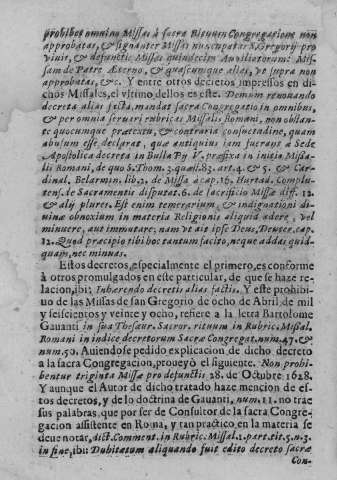 prohibet omnino Missas à sacra Rituum Congregatione non
approbatas, & signanter Missas nuncupatas S. Gregorij pro
vivis, & defunctis Missas quindecim Auxiliatorum: Mis-
sam de Patre Æterno, & quascumque alias, vt supra non
approbatas, &c. Y entre otros decretos impressos en di-
chos Missales, el vltimo dellos es este. Demum renouando
decreta alias iussa, mandat sacra Congregatio in omnibus,
& per omnia seruari rubricas Missalis Romani, non obstan-
te quocumque prætextu, & contraria consuetudine, quam
abusum esse declarat, quæ antiquius iam fuerant à Sede
Apostolica decreta in Bulla Py V. præfixa in initio Missa-
lis Romani, de quo S. Thom. 2. quæst. 82. art. 4. & 5. & Car-
dinal. Belarmin. lib. 2. de Missa à cap. 16. Hurtad. Complu-
tens. de Sacramentis disputat. 6. de sacrificio Missæ diff. 12.
& alij plures. Est enim temerarium, & indignationi di-
uinæ obnoxium in materia Religionis aliquid adere, vel
minuere, aut immutare; nam vt ait ipse Deus, Deuter. cap.
12. Quod præcipio tibi hoc tantum facito, neque addas quid-
quam, nec minuas.
Estos decretos, especialmente el primero, es conforme
à otros promulgados en este particular, de que se haze re-
lacion, ibi: Inhærendo decretis alias factis. Y este prohibi-
uo de las Missas de san Gregorio de ocho de Abril, de mil
y seiscientos y veinte y ocho, refiere a la letra Bartolome
Gauanti in sua Thesaur. Sacror. rituum in Rubric. Missal.
Romani in indice decretorum Sacræ Congregat. num. 47. &
num. 50. Auiendose pedido explicacion de dicho decreto
a la sacra Congregacion, proueyò el siguiente. Non prohi-
bentur triginta Missæ pro defunctis 28. de Octubre 1628.
Y aunque el Autor de dicho tratado haze mencion de es-
tos decretos, y de lo doctrina de Gauanti, num. 11. no trae
sus palabras, que por ser de Consultor de la sacra Congre-
gacion assistente en Roma, y tan practico, en la materia se
deue notar, dict. Comment. in Rubric. Missal. 1. part. tit. 5. n. 3.
in fine, ibi: Dubitatum aliquando fuit edito decreto sacræ
Con-